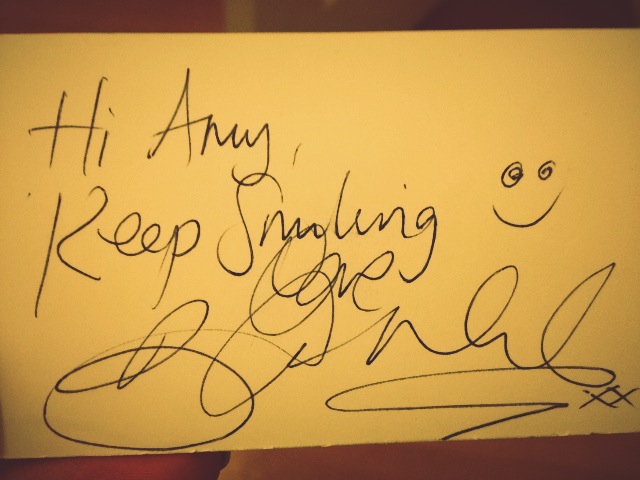 Hi Amy,
Keep Smiling
Love
xx